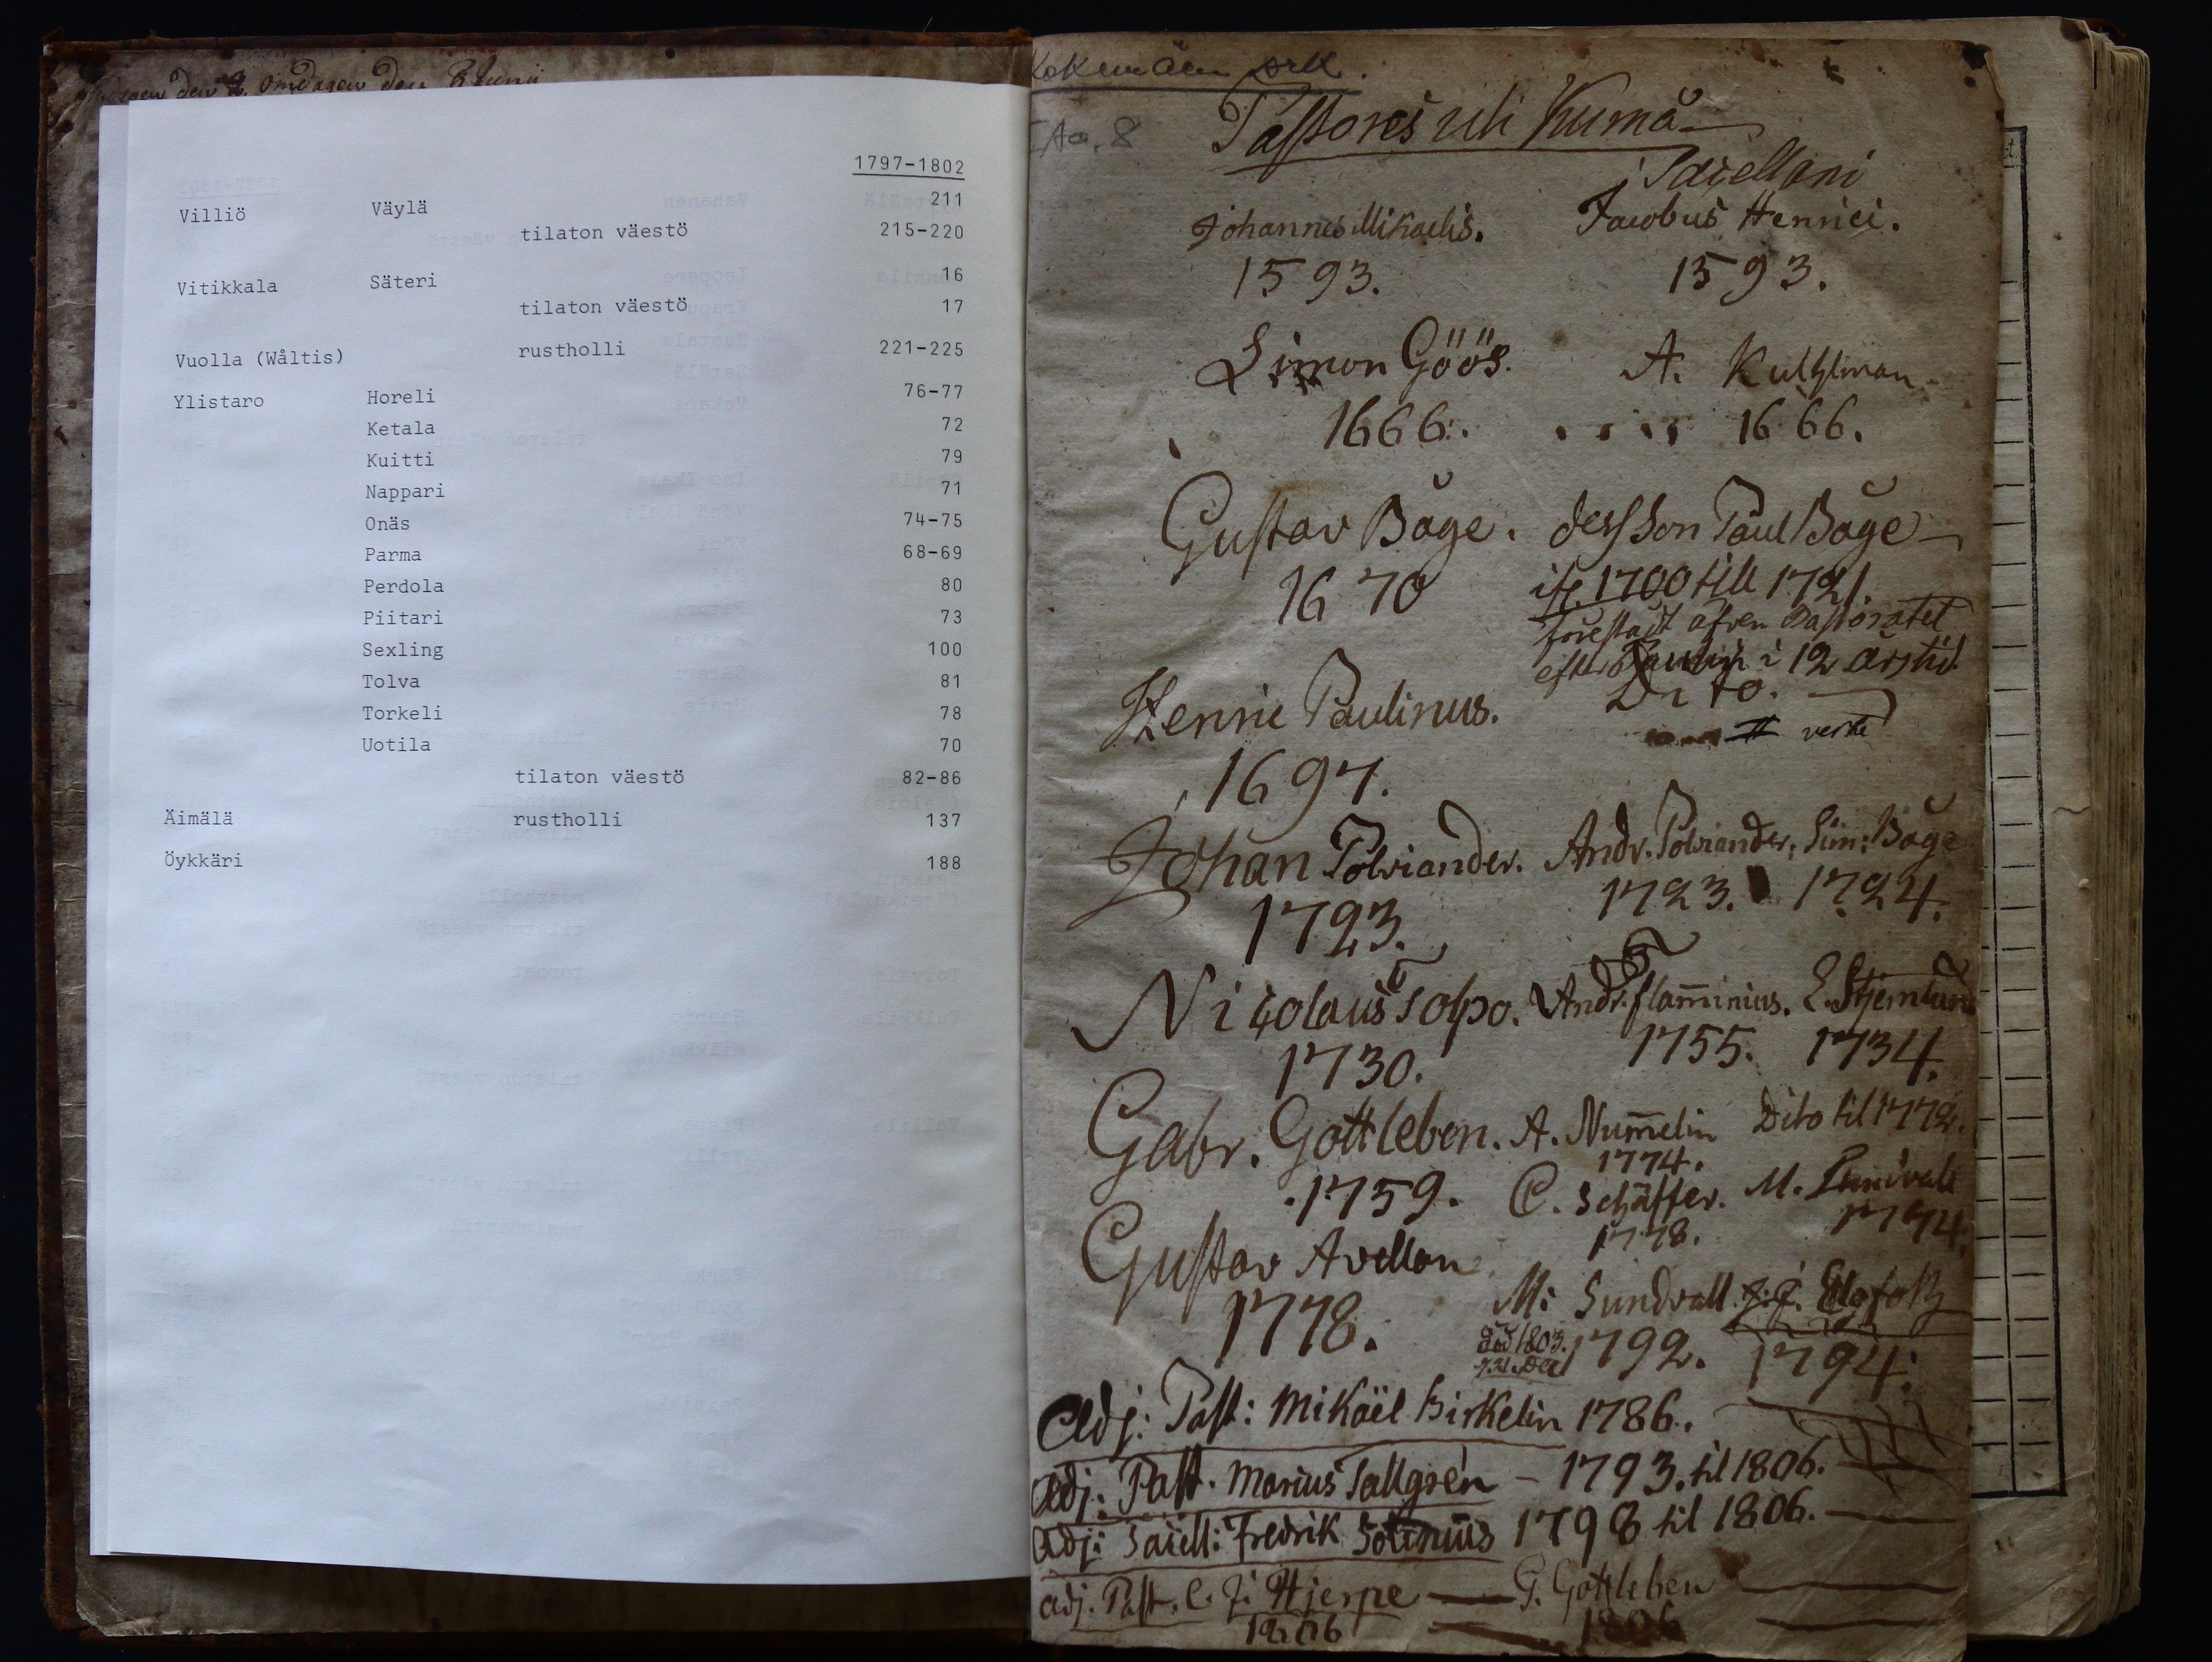 den 2. omdagen den 8 Junii
1797-1802
Villiö Väylä 211
tilaton väestö 215-220
Vitikkala Säteri 16
tilaton väestö 17
Vuolla (Wåltis) rustholli 221-225
Ylistaro Horeli 76-77
Ketala 72
Kuitti 79
Nappari 71
Onäs 74-75
Parma 68-69
Perdola 80
Piitari 73
Sexling 100
Tolva 81
Torkeli 78
Uotila 70
tilaton väestö 82-86
Äimälä rustholli 137
Öykkäri 188
Kokemäen srk.
I Aa. 8
Pastores uti Kumå
Sacellani
Johannes Mikaelis. Jacobus Henrici.
1593. 1593.
Simon Göös. A. Kulhlman
1666. .... 1666.
Gustav Båge. dess Son Paul Båge
1670 ifr. 1700 till 1721.
förestådt äfven Pastoratet
efter i 12 års tid
Henric Paulinus. Dito.
verte
1697.
Johan Polviander. Andr. Polviander; Sim: Båge
1723. 1723. 1724.
Nicolaus Tolpo. Andr. Flam̅inius. E. Stjernlund
1730. 1755. 1734.
Gabr. Gottleben. A. Num̅elin Dito til 1772.
1774.
1759. C. Schäffer. M. Sundvall
1778. 1774.
Gustav Avellan
M: Sundvall. J. G. Elgfoth
1778. död 1803. 1792. 1794.
d. 21. Dec
Adj: Past: Mikaël Birkelin 1786.
Adj: Past. Marius Tallgrén - 1793. til 1806.
Adj: Sacell: Fredrik Solenius 1798 til 1806.
adj. Past. C. J. Hjerpe — G. Gottleben
1806 1806